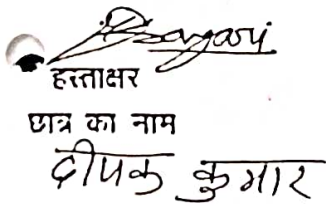 हस्ताक्षर
छात्र का नाम
दीपक कुमार